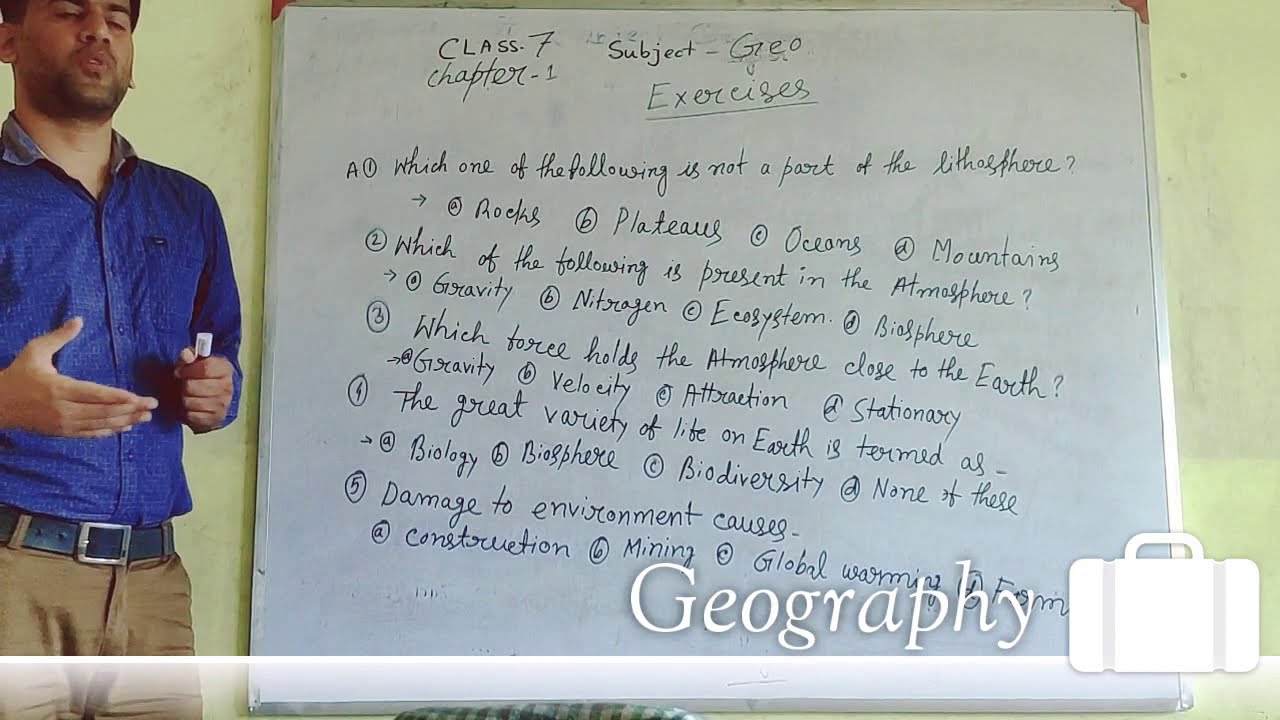 CLASS-7 Subject - Geo
Chapter-1
Exercises
A① Which one of the following is not a part of the lithosphere?
→ ⓐ Rocks ⓑ Plateaus ⓒ Oceans ⓓ Mountains
② Which of the following is present in the Atmosphere?
→ ⓐ Gravity ⓑ Nitrogen ⓒ Ecosystem. ⓓ Biosphere
③ Which force holds the Atmosphere close to the Earth?
→ ⓐ Gravity ⓑ Velocity ⓒ Attraction ⓓ Stationary
④ The great variety of life on Earth is termed as -
→ ⓐ Biology ⓑ Biosphere ⓒ Biodiversity ⓓ None of these
⑤ Damage to environment causes -
ⓐ construction ⓑ Mining ⓒ Global warming ⓓ
Geography